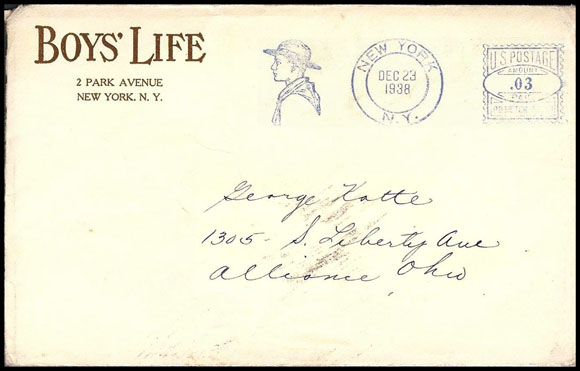 BOYS' LIFE
2 PARK AVENUE
NEW YORK, N. Y.
NEW YORK
DEC 23
1938
N.Y.
U.S. POSTAGE
AMOUNT
.03
PAID
George Katte
1305 - S. Liberty Ave
Alliance, Ohio